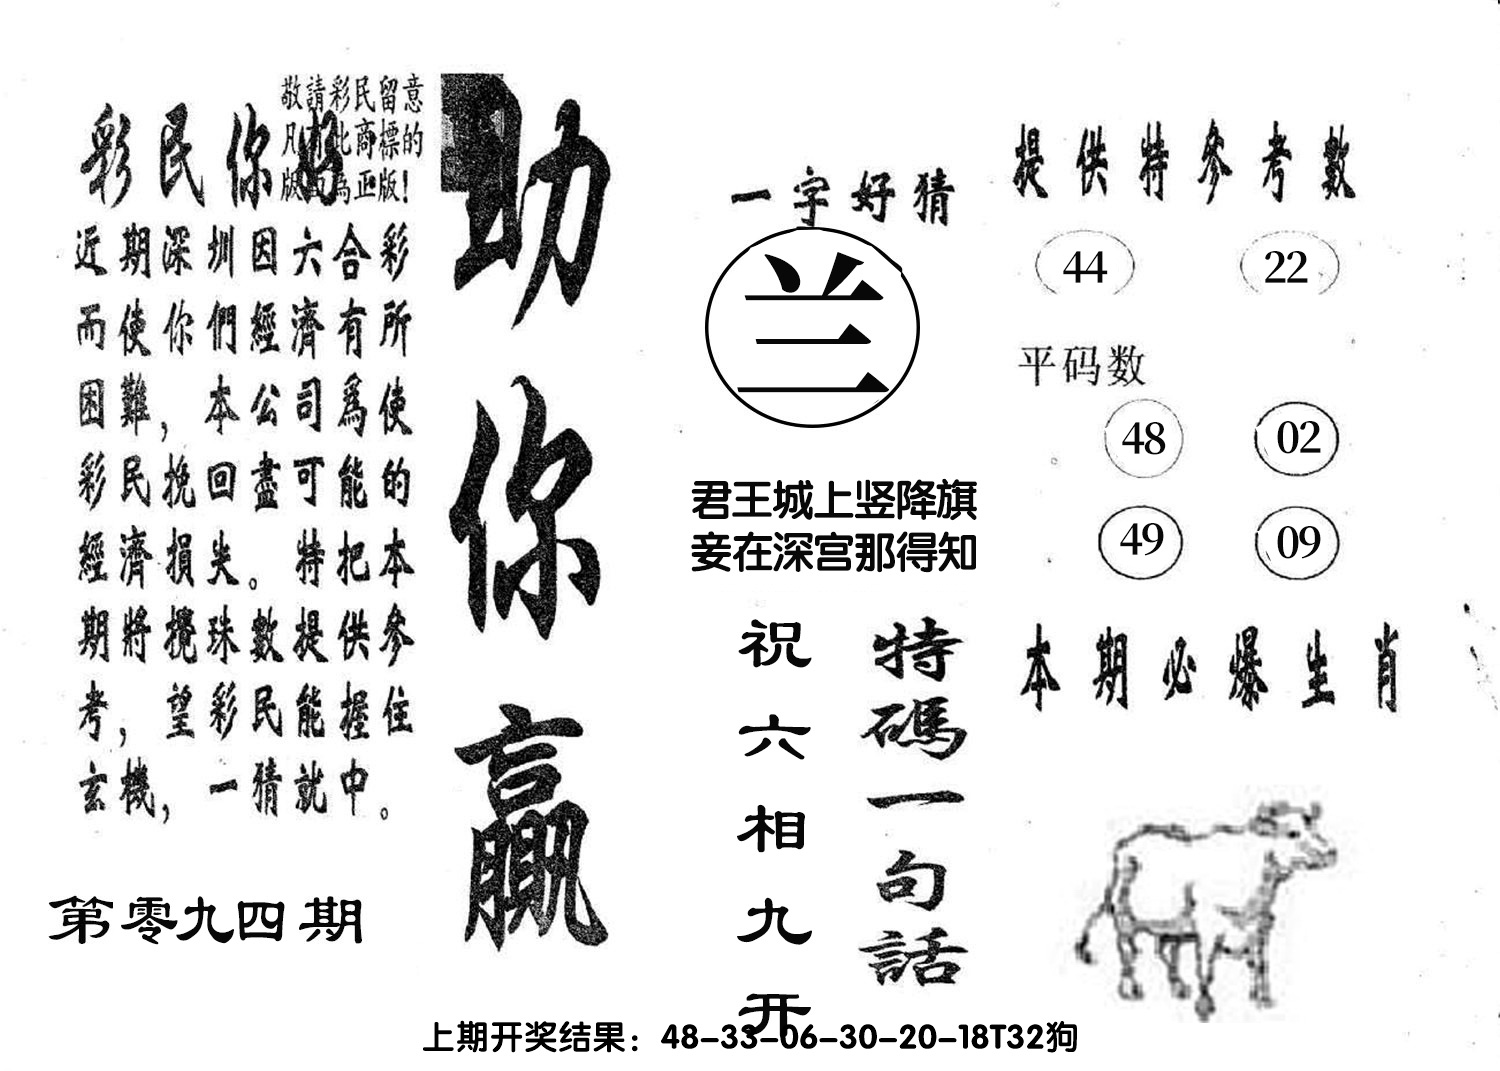 敬請彩民留意
凡有此商標的
版面為正版!
彩民你好
近期深圳因六合彩
而使你們經濟有所
困難，本公司爲使
彩民挽回盡可能的
經濟損失。特把本
期將攪珠數提供參
考，望彩民能握住
玄機，一猜就中。
第零九四期
助你贏
一字好猜
兰
君王城上竖降旗
妾在深宫那得知
特碼一句話
祝六相九开
提供特參考數
44 22
平码数
48 02
49 09
本期必爆生肖
上期开奖结果：48-33-06-30-20-18T32狗